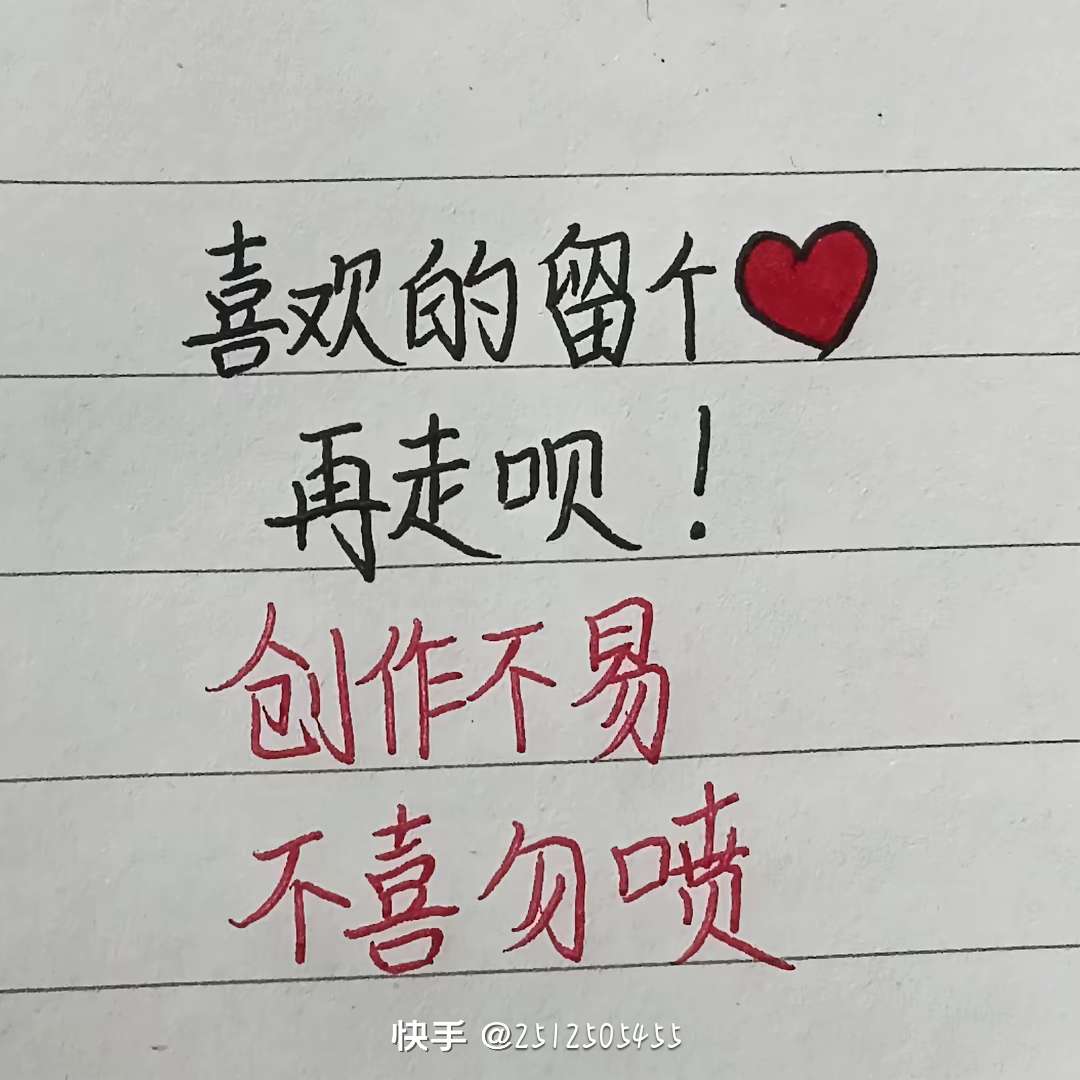 喜欢的留个❤
再走呗！
创作不易
不喜勿喷
快手 @2512505455